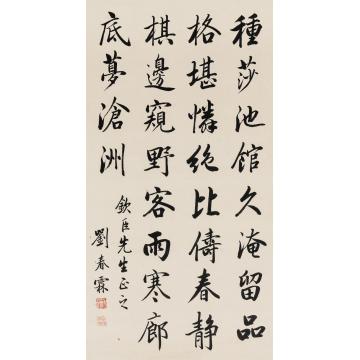 種莎池館久淹留品
格堪憐絕比儔春靜
棋邊窺野客雨寒廊
底夢滄洲
欽臣先生正之
劉春霖